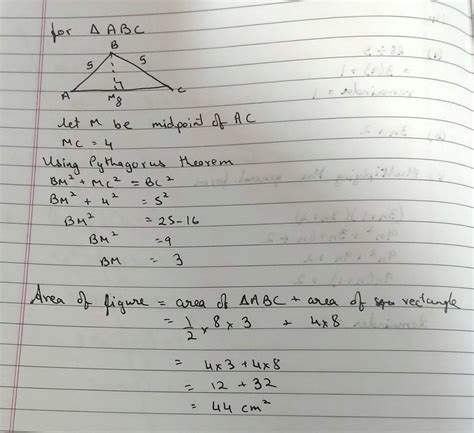 for △ABC
B
5 5
A M 8 C
let M be midpoint of AC
MC = 4
Using Pythagorus theorem
BM² + MC² = BC²
BM² + 4² = 5²
BM² = 25-16
BM² = 9
BM = 3
Area of figure = area of △ABC + area of rectangle
= 1/2 × 8 × 3 + 4×8
= 4×3 + 4×8
= 12 + 32
= 44 cm²